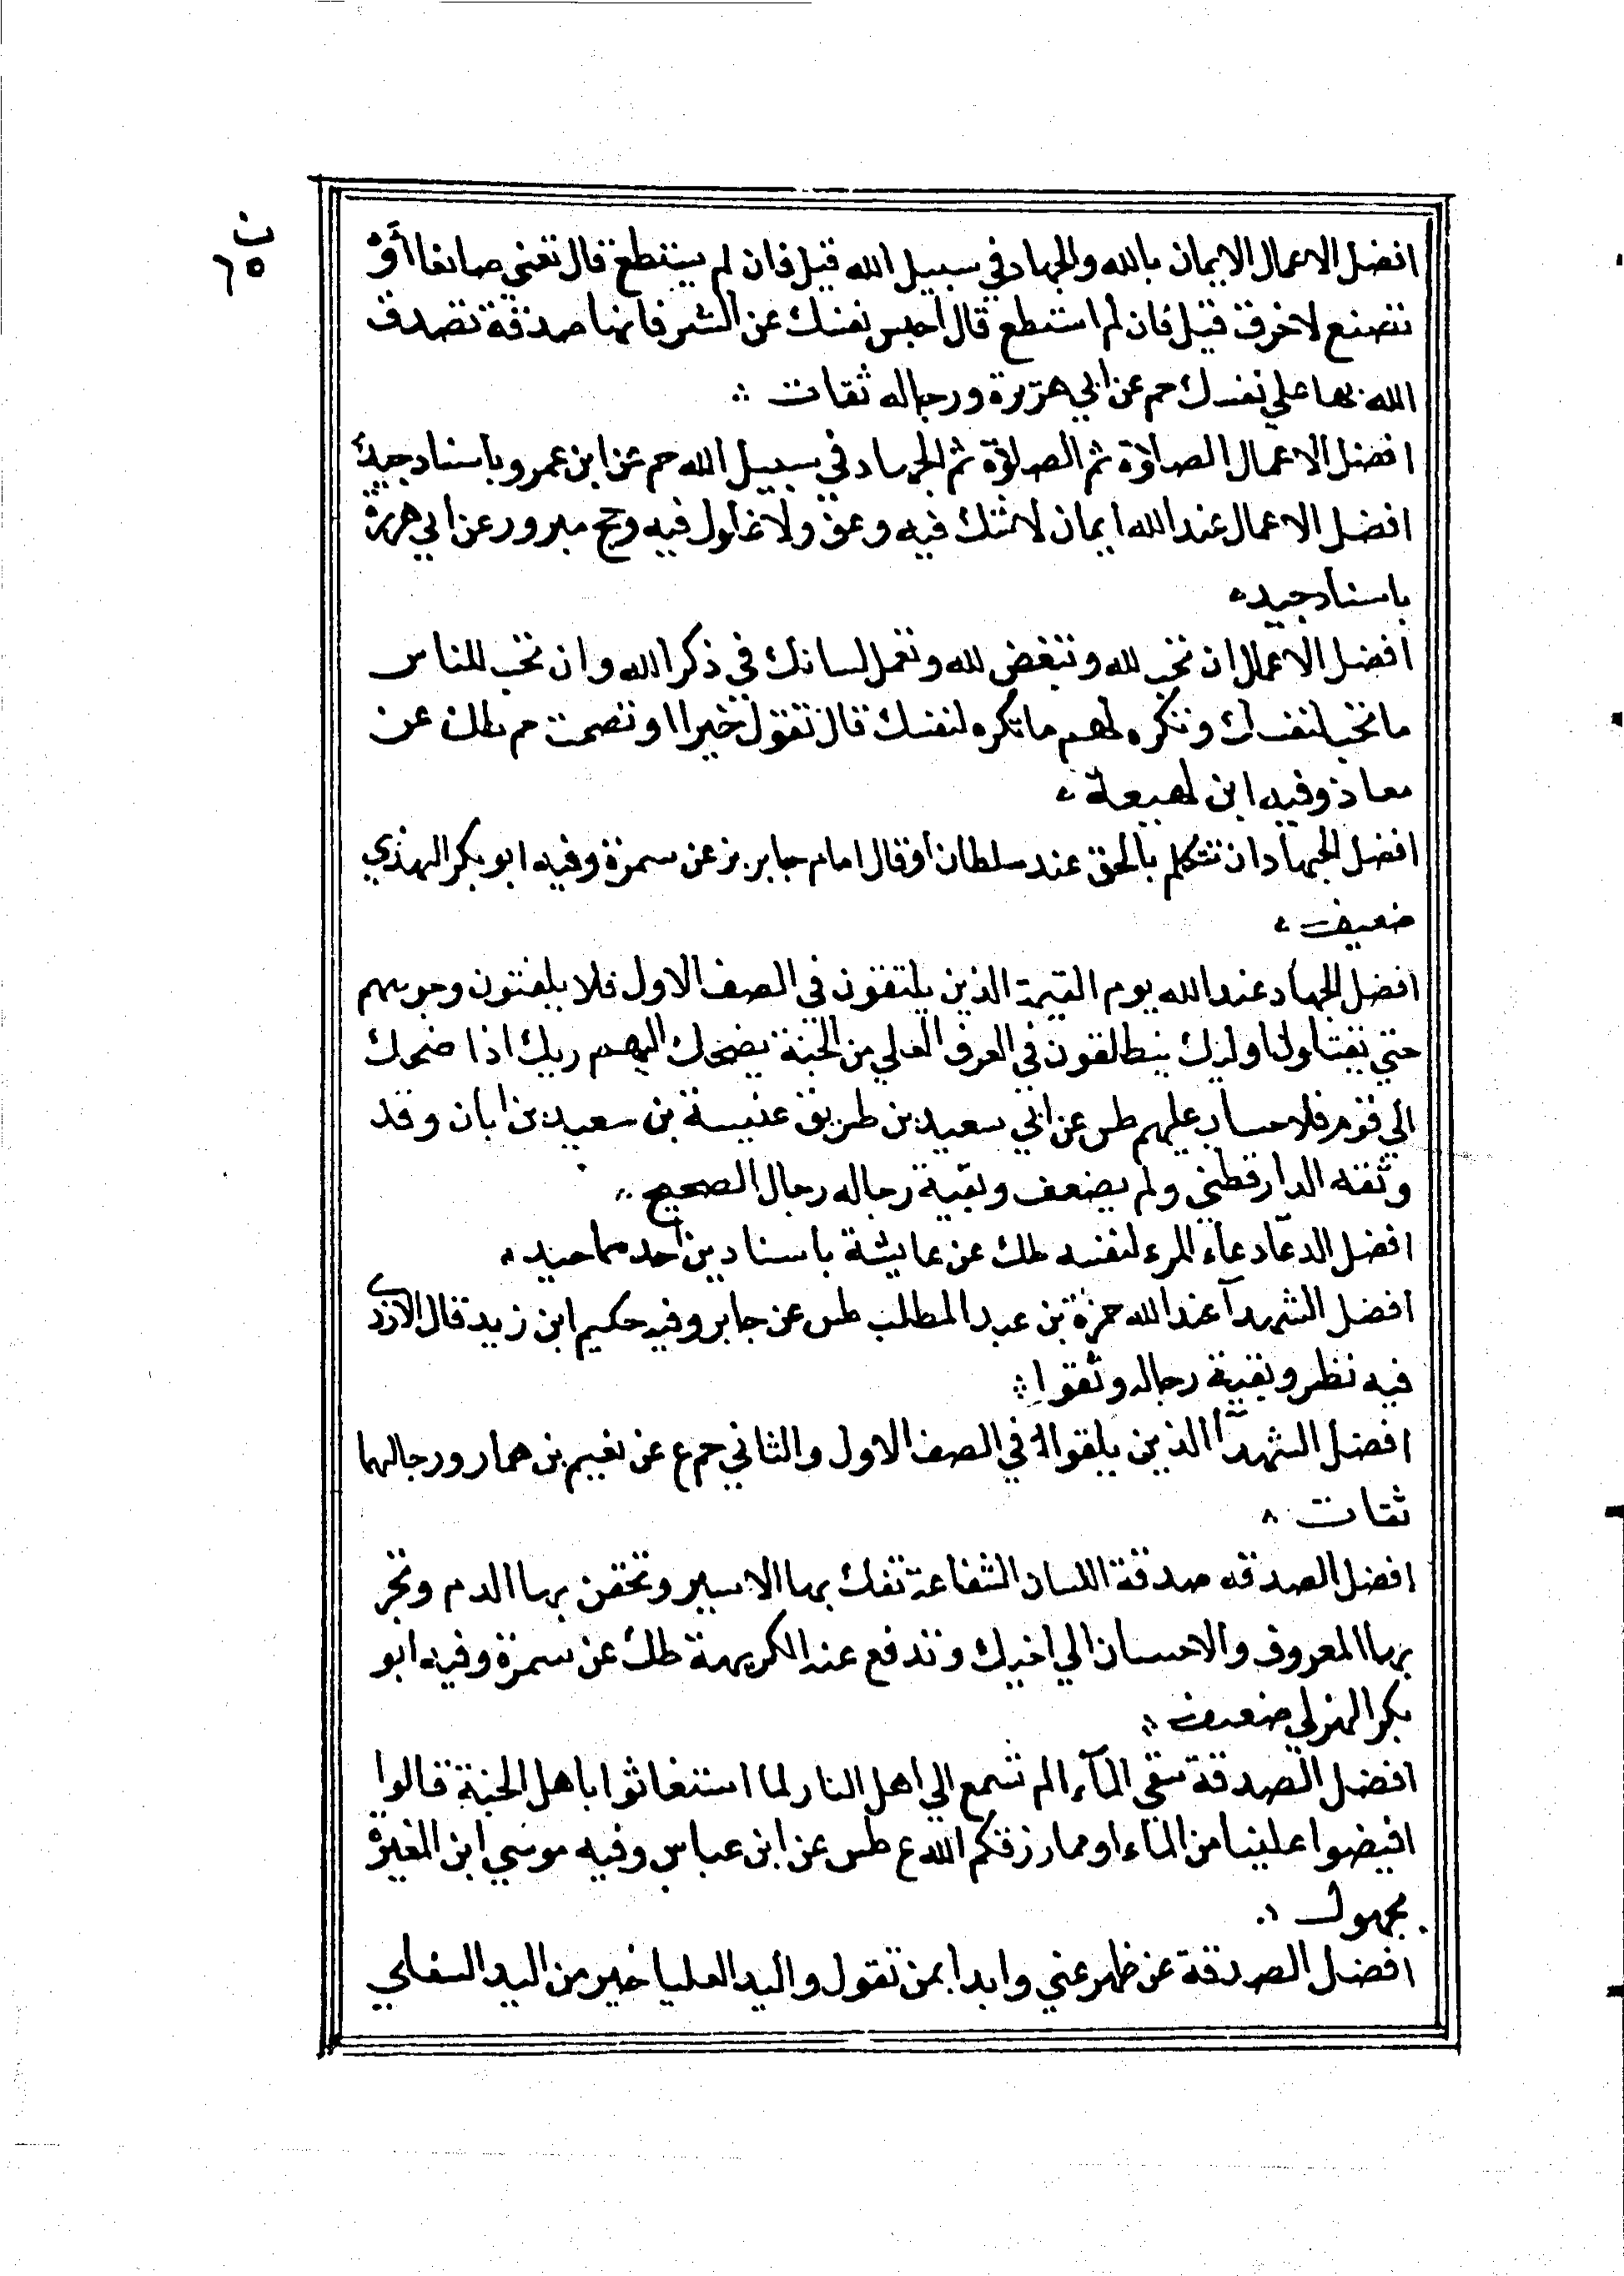 ن
٦٥
افضل الاعمال الايمان بالله والجهاد في سبيل الله قيل فان لم يستطع قال تعني صانعا أو
تصنع لاخرق قيل فان لم استطع قال احبس نفسك عن الشر فانها صدقة تصدق
الله بها علي نفسك حم عن ابي هريرة ورجاله ثقات
افضل الاعمال الصلوة ثم الصلوة ثم الجهاد في سبيل الله حم عن ابن عمرو باسناد جيد
افضل الاعمال عند الله ايمان لا شك فيه وعزو لا غلول فيه وحج مبرور عن ابي هريرة
باسناد جيد
افضل الاعمال ان تحب لله وتبغض لله وتعمل لسانك في ذكر الله وان تحب للناس
ما تحب لنفسك وتكره لهم ما تكره لنفسك قال تقول خيرا او تصمت م طك عن
معاذ وفيه ابن لهيعة
افضل الجهاد ان تتكلم بالحق عند سلطان أو قال امام جابر بز عن سمرة وفيه ابو بكر الهذي
ضعيف
افضل الجهاد عند الله يوم القيمة الذين يلتقون في الصف الاول فلا يلفتون وجوههم
حتي يقتلوا اوليك ينطلقون في الغرف العلي من الجنة يضحك اليهم ربك اذا ضحك
الي قوم فلا حساب عليهم طس عن ابي سعيد بن طريق عنبسة بن سعيد بن ابان وقد
وثقه الدارقطني ولم يضعف وبقية رجاله رجال الصحيح
افضل الدعا دعاء المرء لنفسه طك عن عايشة باسنادين احدهما جيد
افضل الشهدآ عند الله حمزة بن عبد المطلب طس عن جابر وفيه حكيم ابن زيد قال الازدي
فيه نظر وبقية رجاله وثقوا
افضل الشهدآ الذين يلقوا في الصف الاول والثاني حم ع عن نعيم بن همار ورجالهما
ثقات
افضل الصدقه صدقة اللسان الشفاعة تفك بها الاسير وتحقن بها الدم وتجر
بها المعروف والاحسان الي اخيك وتدفع عنه الكريهة طك عن سمرة وفيه ابو
بكر الهزلي ضعيف
افضل الصدقة سقي المآء الم تسمع الي اهل النار لما استغاثوا باهل الجنة قالوا
افيضوا علينا من الماء او مما رزقكم الله ع طس عن ابن عباس وفيه موسي ابن المغيرة
مجهول
افضل الصدقة عن ظهر غني وابدا بمن تقول واليد العليا خير من اليد السفلي